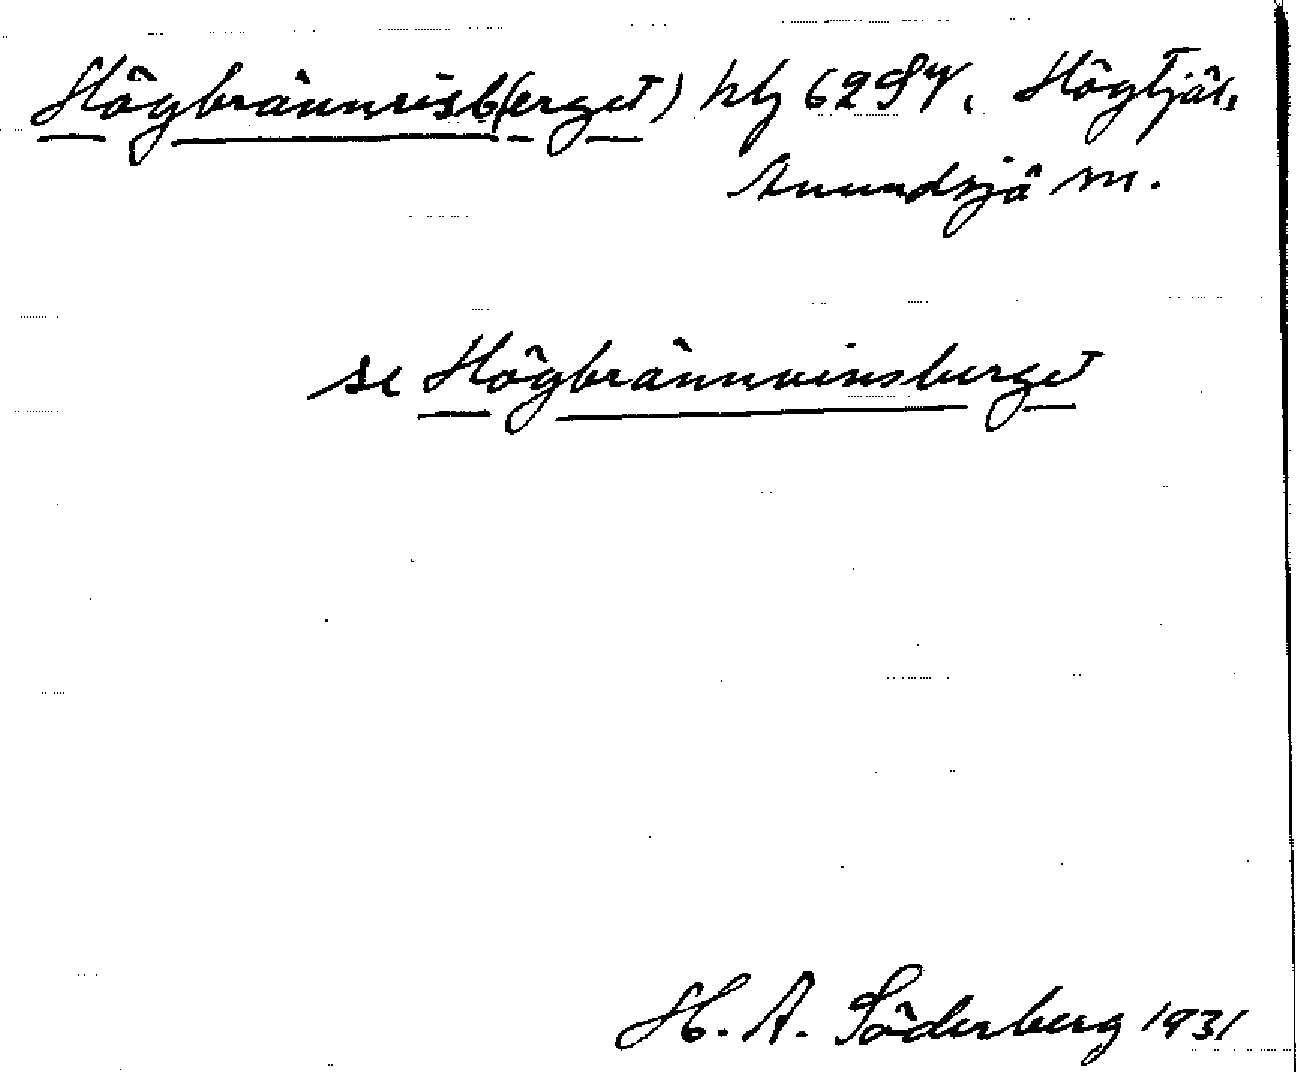 Högbrännvisb(erget) hlj 62 S4. Högtjäl.
Anundsjö sn.
se Högbrännvinsberget
H. A. Söderberg 1931